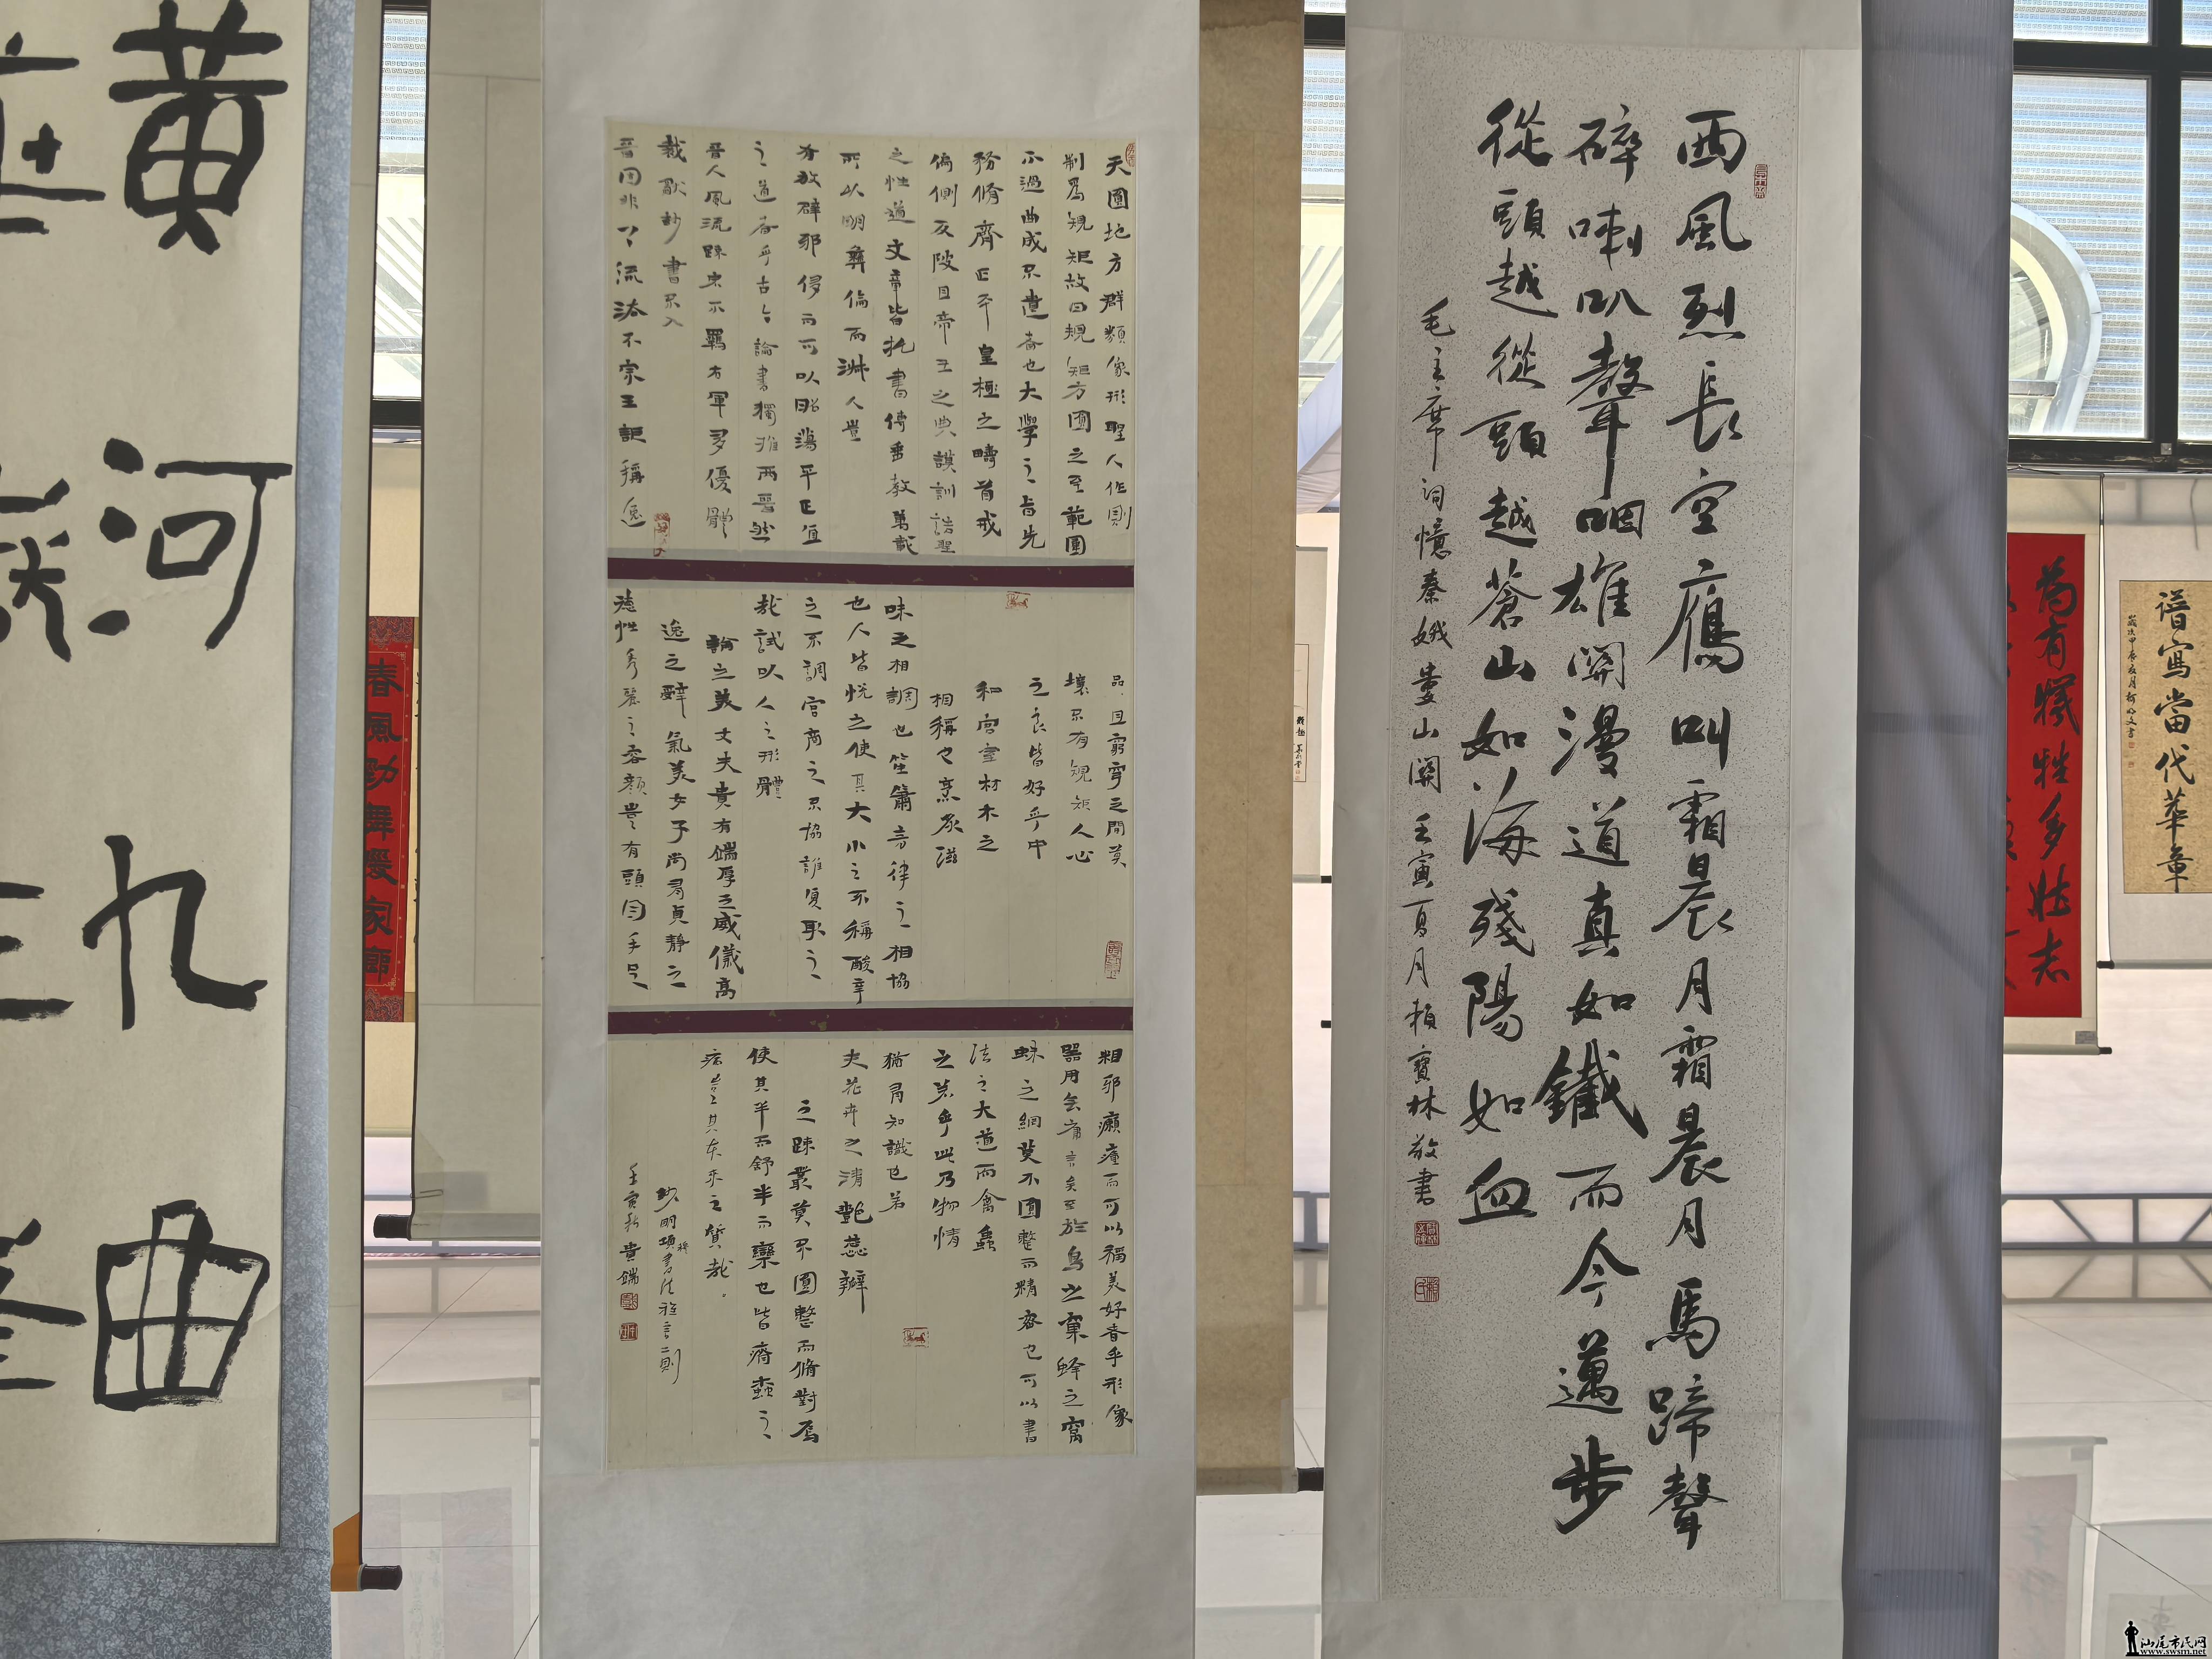 西風烈長空鴈叫霜晨月霜晨月馬蹄聲
碎喇叭聲咽雄關漫道真如鐵而今邁步
從頭越從頭越蒼山如海殘陽如血
毛主席詞憶秦娥婁山關 壬寅夏月賴寶林敬書
天圓地方群類像形聖人作則
制為規矩故曰規矩方圓之至範圍
不過曲成不遺者也大學之旨先
務脩齊正平皇極之疇首戒
偏側反陂且帝王之典謨訓誥聖
之性道文章皆托書傳垂教萬載
所以明彝倫而淑人豈
有放辟邪侈而可以昭蕩平正直
之道者乎古今論書獨推兩晉然
晉人風流疎宕不羈右軍多優體
裁獻抄書不入
晉固非了流添不宗王詎稱逸
品且穹窿之間莫
壞不有規矩人心
之良皆好乎中
和宮室材木之
相稱也烹炙滋
味之相調也笙簫音律之相協
也人皆悅之使其大小之不稱酸辛
之不調宮商之不協誰復取之
哉試以人之形體
論之美丈夫貴有端厚之威儀高
逸之辭氣美女子尚有貞靜之
德性秀麗之容顏豈有頭目手足
粗邪癩瘇而可以稱美好者乎形像
器用無庸言矣至於鳥之窠蜂之窩
蛛之網莫不圓整而精密也可以書
法之大道而禽蟲
之若乎此乃物情
猶有知識也若
夫花卉之清艷蕊瓣
之疎叢莫不圓整而脩對焉
使其半而舒半而欒也皆瘠蠹之
病豈其本來之質哉。
抄明項穆書法雅言二則
壬寅秋貴端
黃河九曲
春風勁舞暖家鄉
為有犧牲多壯志
譜寫當代華章
汕尾市民网
www.swsm.net